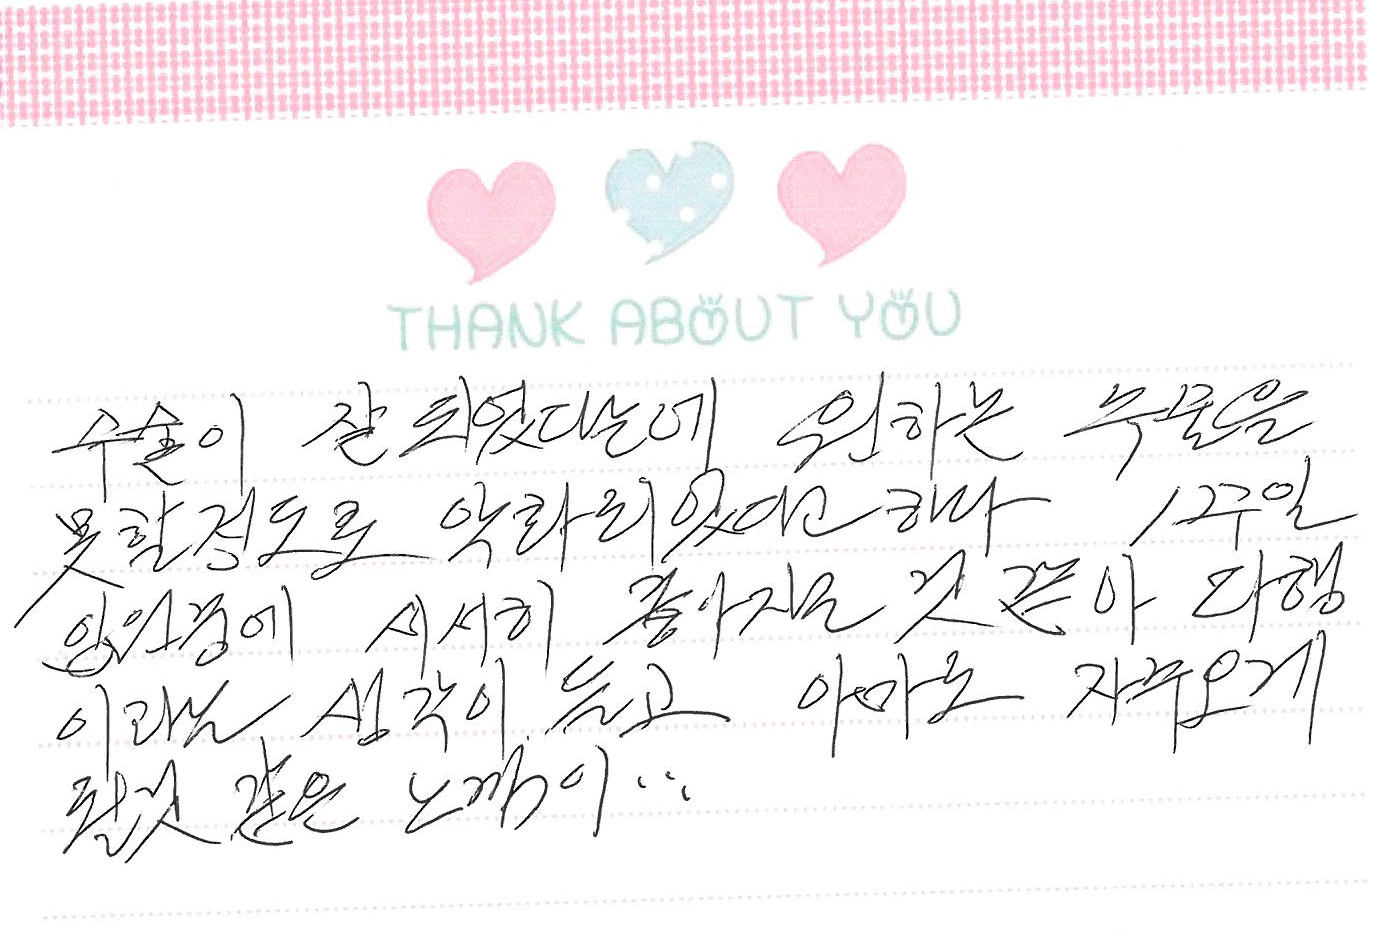 THANK ABOUT YOU
수술이 잘 되었다는에 원하는
못할정도로 악화되었다고 하나 1주일
입원중에 서서히 좋아지는 것 같아 다행
이라는 생각이 들고 아마도 자주오게
될것 같은 느낌이...